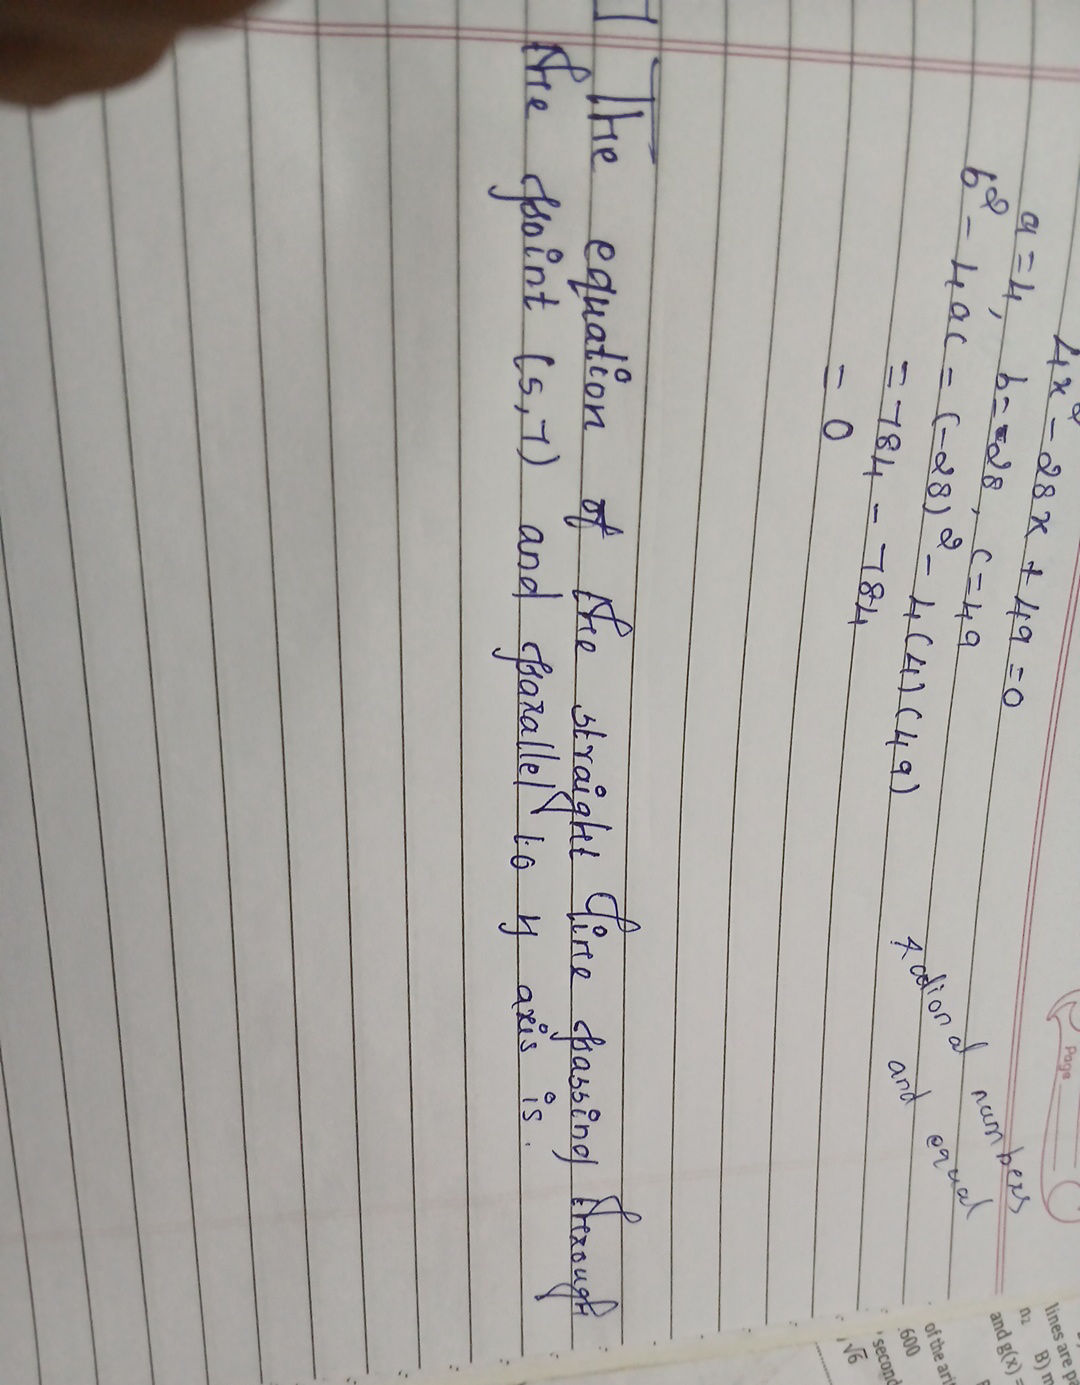 Page
4x² - 28x + 49 = 0
a = 4, b = -28, c = 49
b² - 4ac = (-28)² - 4(4)(49)
= 784 - 784
= 0
rational numbers
and equal
The equation of the straight line passing through
the point (5,7) and parallel to y axis is.
lines are pa
n₂ B) m
and g(x) =
of the arit
600
second
√6